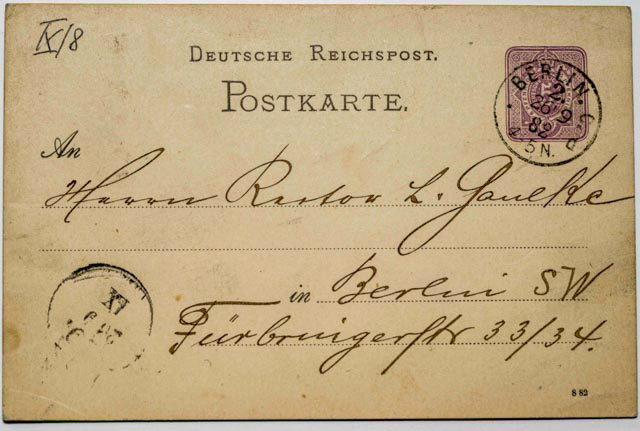 IX/8
DEUTSCHE REICHSPOST.
POSTKARTE.
BERLIN. C.
2.
26 9
82
4-5N.
An
Herrn Rector L. Gaulke
in Berlin SW
Fürbringerstr 33/34.
XI
8 82